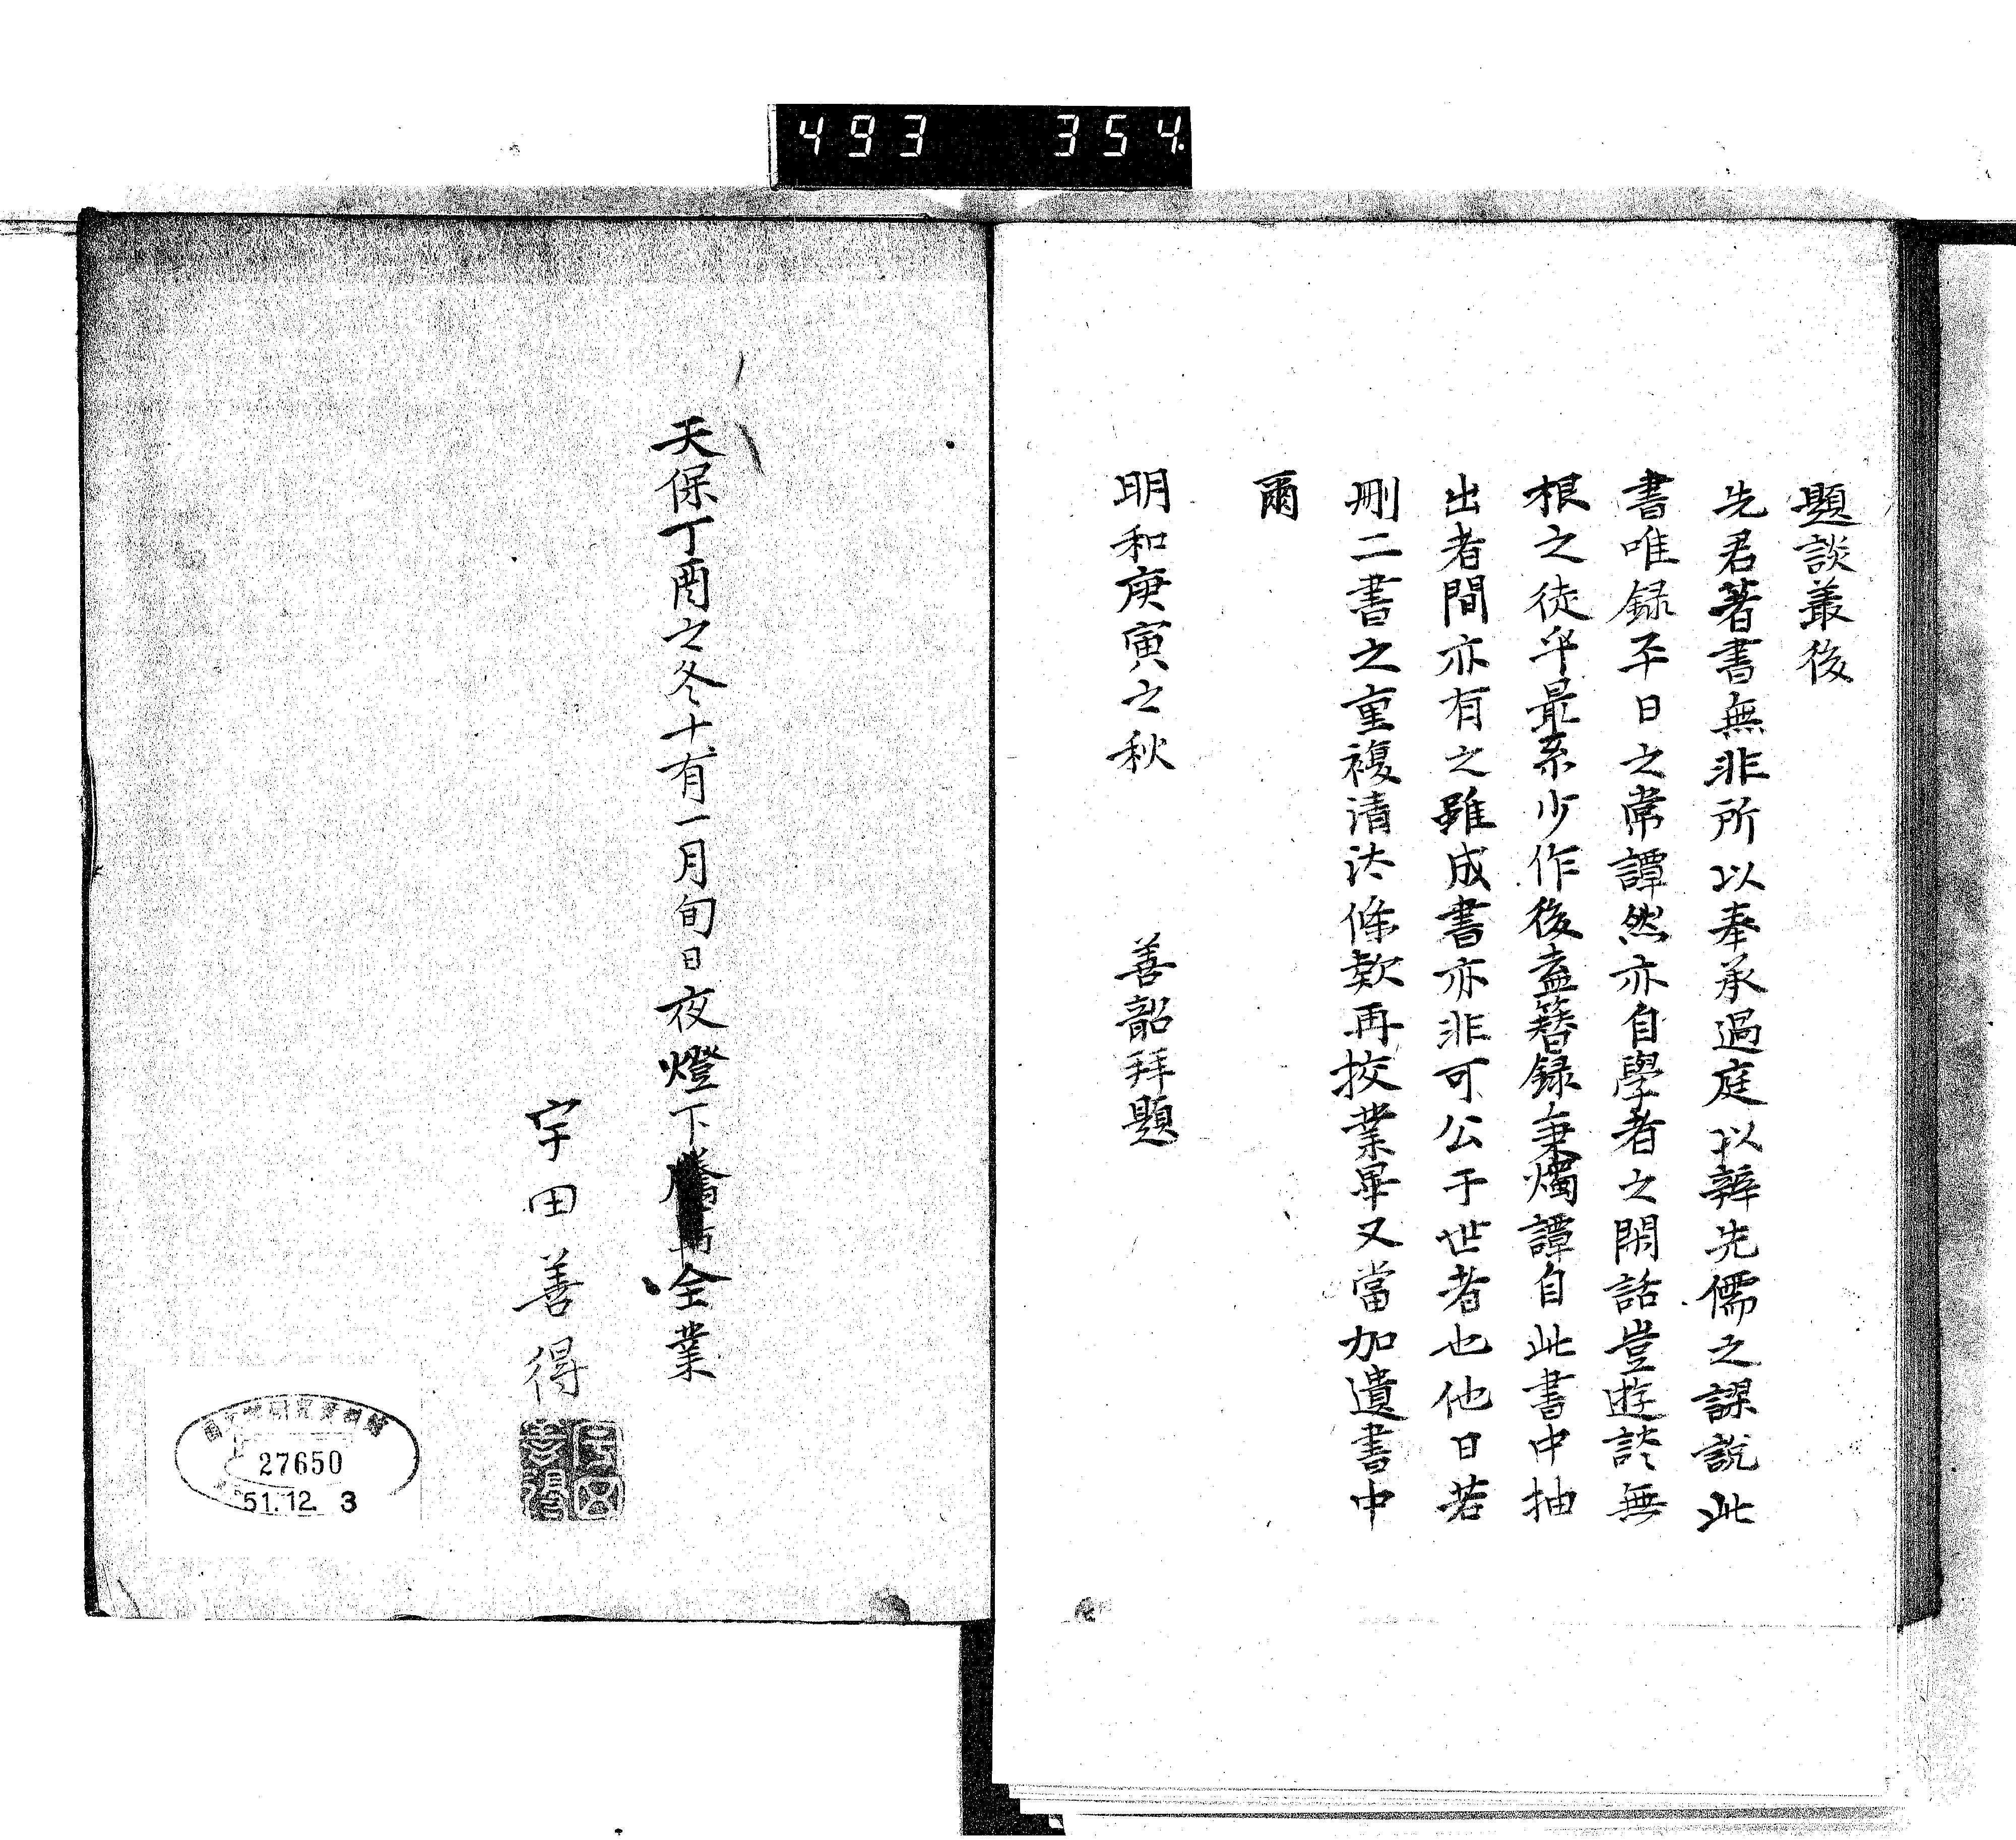 493 354.
題談叢後
先君著書無非所以奉承過庭以辨先儒之誤說此
書唯録平日之常譚然亦自學者之閑話豈遊談無
根之徒乎最系少作後盍簪録秉燭譚自此書中抽
出者間亦有之雖成書亦非可公于世者也他日若
刪二書之重複清汰條款再挍業畢又當加遺書中
爾
明和庚寅之秋 善韶拜題
天保丁酉之冬十有一月旬日夜燈下全業
宇田善得
27650
51.12.3